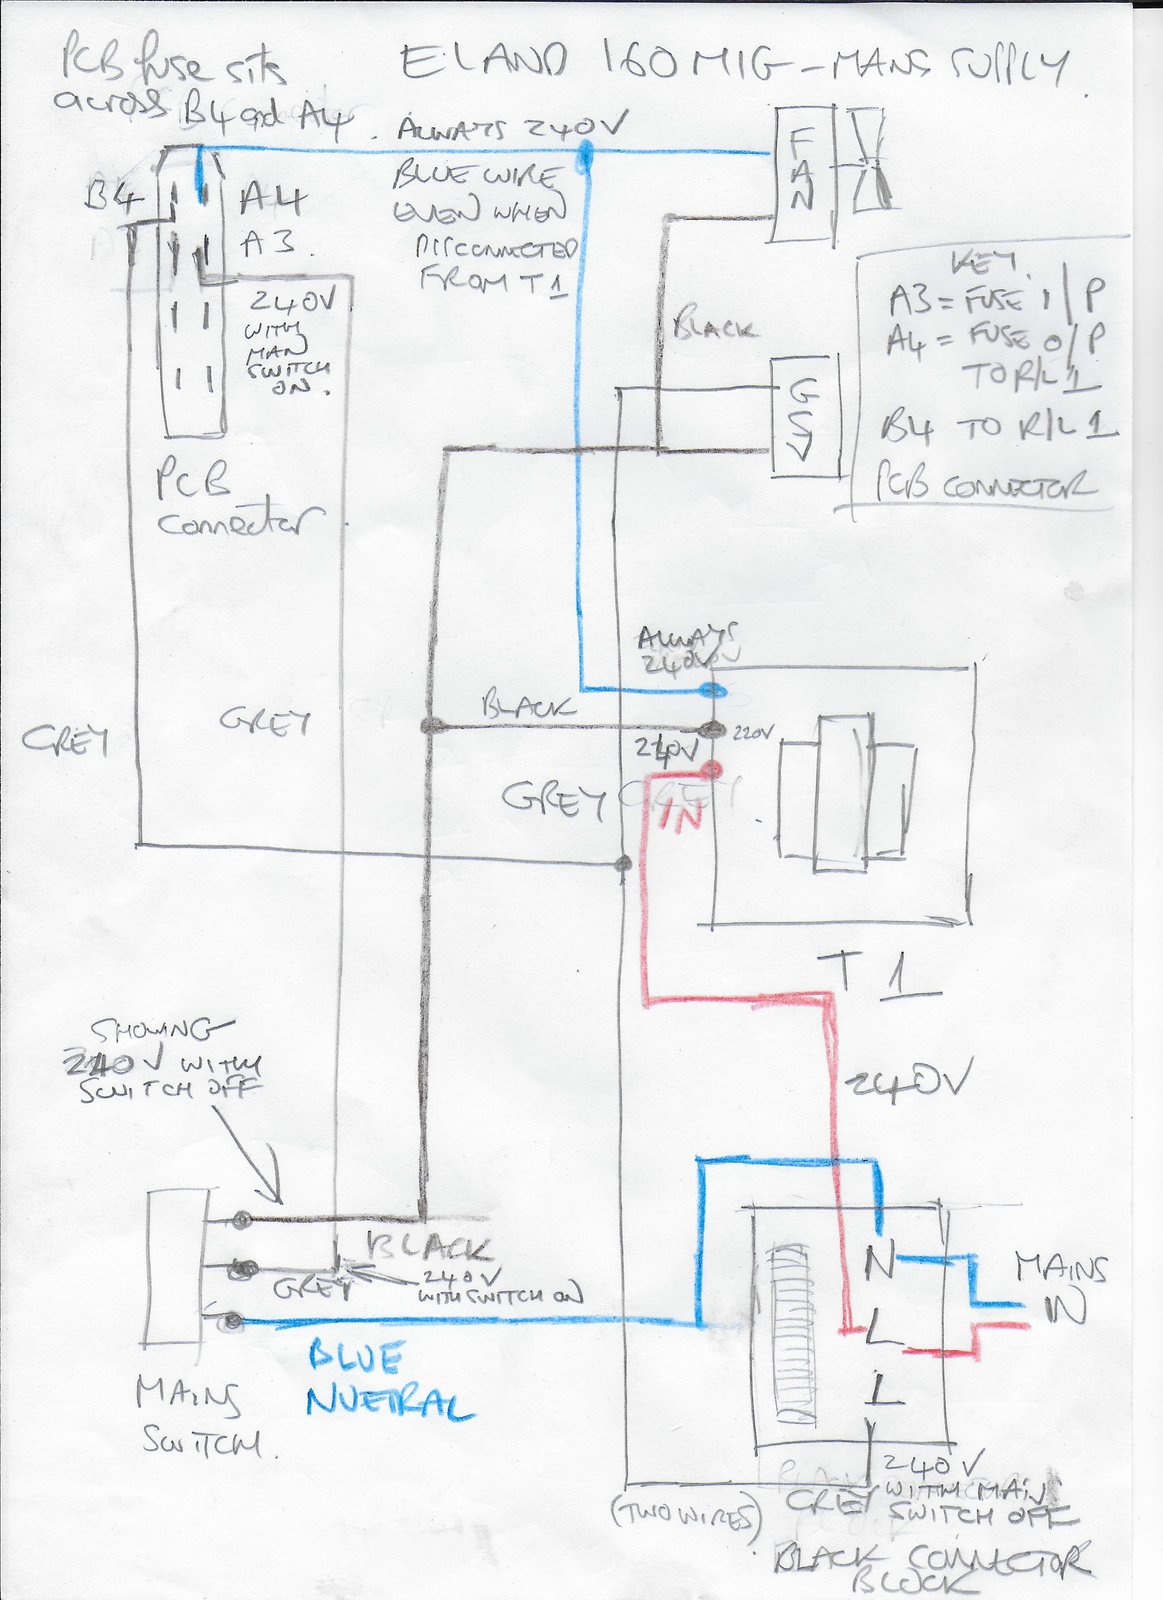 PCB fuse sits
across B4 and A4.
ELAND 160 MIG - MANS SUPPLY.
ALWAYS 240V
BLUE WIRE
EVEN WHEN
DISCONNECTED
FROM T1
FAN
B4
A4
A3.
240V
WITH
MAN
SWITCH
ON.
PCB
Connector
BLACK
GSV
KEY.
A3 = FUSE I/P
A4 = FUSE O/P
TO R/L 1
B4 TO R/L 1
PCB CONNECTOR
ALWAYS
240V
BLACK
220V
240V
GREY
GREY
GREY
IN
T 1
SHOWING
240V WITH
SWITCH OFF
240V
BLACK
GREY
240V
WITH SWITCH ON
BLUE
NUETRAL
MAINS
SWITCH.
N
L
1
MAINS
IN
(TWO WIRES)
GREY
240V
WITH MAIN
SWITCH OFF
BLACK CONNECTOR
BLOCK